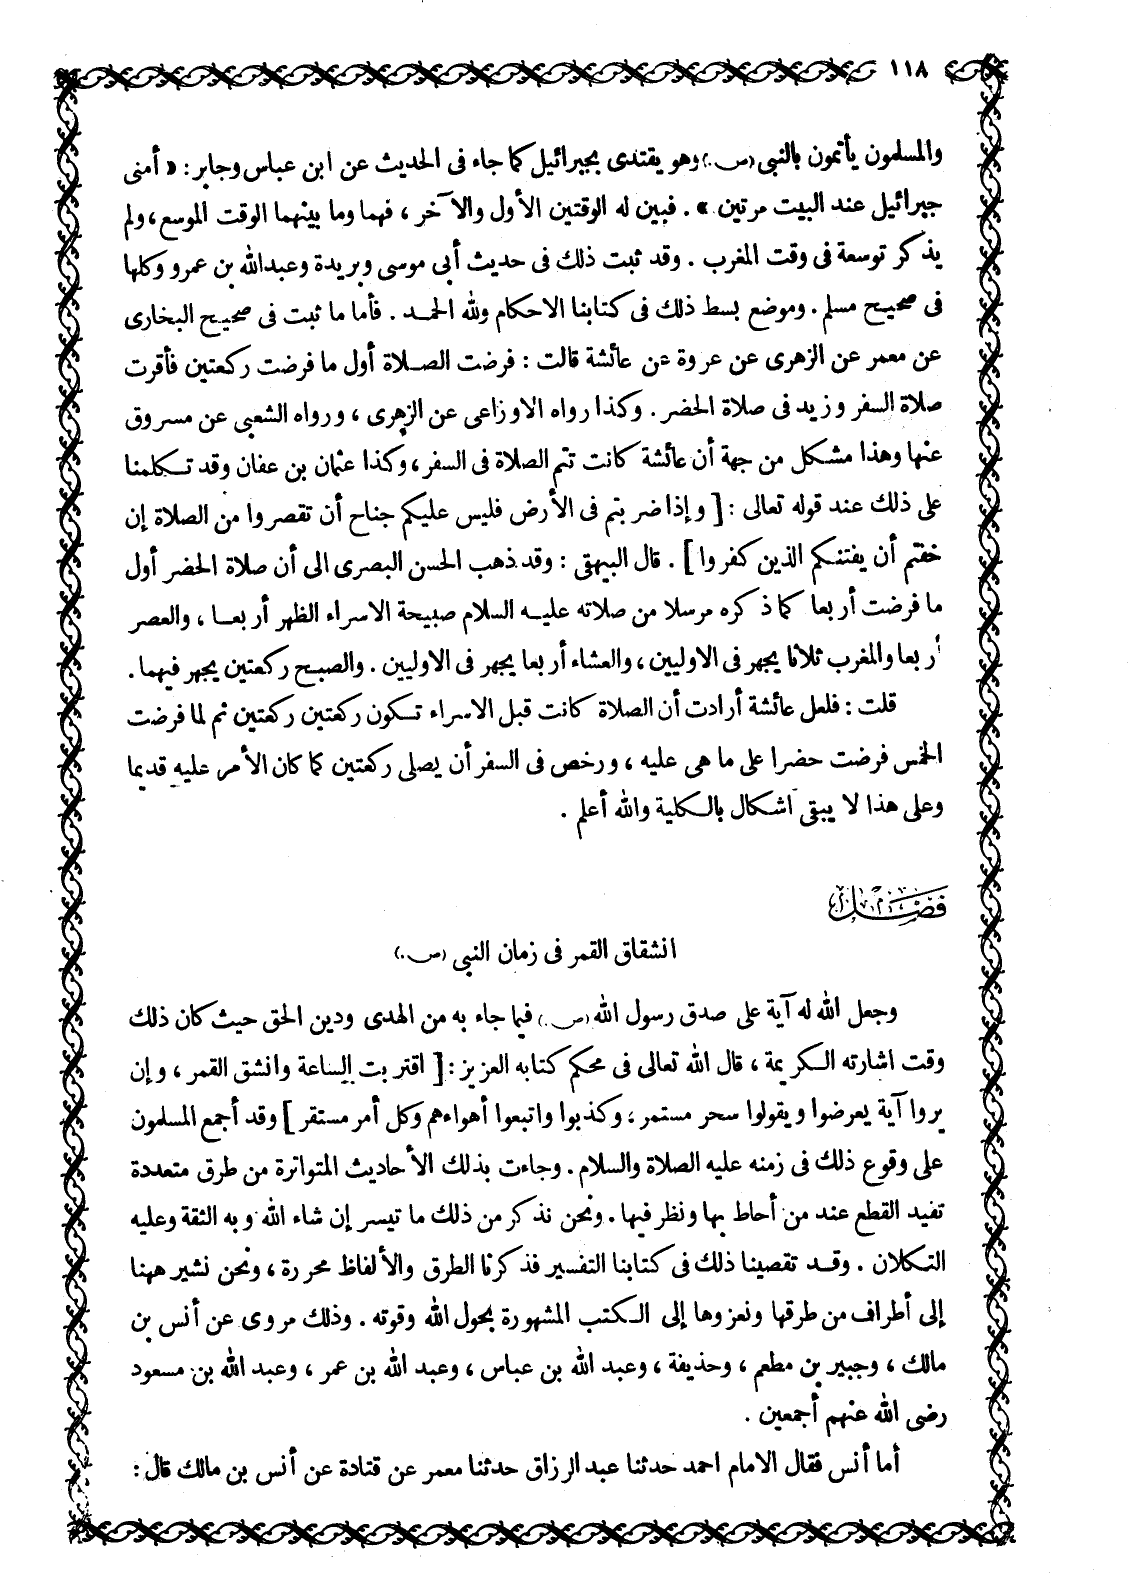 ١١٨
والمسلمون يأتمون بالنبي (ص.) وهو يقتدى بجبرائيل كما جاء فى الحديث عن ابن عباس وجابر : « أمنى
جبرائيل عند البيت مرتين » . فبين له الوقتين الأول والآخر ، فهما وما بينهما الوقت الموسع ، ولم
يذكر توسعة فى وقت المغرب . وقد ثبت ذلك فى حديث أبى موسى وبريدة وعبدالله بن عمرو وكلها
فى صحيح مسلم . وموضع بسط ذلك فى كتابنا الاحكام ولله الحمد . فأما ما ثبت فى صحيح البخارى
عن معمر عن الزهرى عن عروة عن عائشة قالت : فرضت الصلاة أول ما فرضت ركعتين فأقرت
صلاة السفر وزيد فى صلاة الحضر . وكذا رواه الاوزاعى عن الزهرى ، ورواه الشعبي عن مسروق
عنها وهذا مشكل من جهة أن عائشة كانت تتم الصلاة فى السفر ، وكذا عثمان بن عفان وقد تكلمنا
على ذلك عند قوله تعالى : [ وإذا ضربتم فى الأرض فليس عليكم جناح أن تقصروا من الصلاة إن
خفتم أن يفتنكم الذين كفروا ] . قال البيهقى : وقد ذهب الحسن البصرى الى أن صلاة الحضر أول
ما فرضت أربعا كما ذكره مرسلا من صلاته عليه السلام صبيحة الاسراء الظهر أربعا ، والعصر
أربعا والمغرب ثلاثا يجهر فى الاوليين ، والعشاء أربعا يجهر فى الاوليين . والصبح ركعتين يجهر فيهما .
قلت : فلعل عائشة أرادت أن الصلاة كانت قبل الاسراء تكون ركعتين ركعتين ثم لما فرضت
الخمس فرضت حضرا على ما هى عليه ، ورخص فى السفر أن يصلى ركعتين كما كان الأمر عليه قديما
وعلى هذا لا يبقى اشكال بالكلية والله أعلم .
فصل
انشقاق القمر فى زمان النبي (ص.)
وجعل الله له آية على صدق رسول الله (ص.) فيما جاء به من الهدى ودين الحق حيث كان ذلك
وقت اشارته الكريمة ، قال الله تعالى فى محكم كتابه العزيز : [ اقتربت الساعة وانشق القمر ، وإن
يروا آية يعرضوا ويقولوا سحر مستمر ؛ وكذبوا واتبعوا أهواءهم وكل أمر مستقر ] وقد أجمع المسلمون
على وقوع ذلك فى زمنه عليه الصلاة والسلام . وجاءت بذلك الأحاديث المتواترة من طرق متعددة
تفيد القطع عند من أحاط بها ونظر فيها . ونحن نذكر من ذلك ما تيسر إن شاء الله وبه الثقة وعليه
التكلان . وقد تقصينا ذلك فى كتابنا التفسير فذكرنا الطرق والألفاظ محررة ، ونحن نشير ههنا
إلى أطراف من طرقها ونعزوها إلى الكتب المشهورة بحول الله وقوته . وذلك مروى عن أنس بن
مالك ، وجبير بن مطعم ، وحذيفة ، وعبد الله بن عباس ، وعبد الله بن عمر ، وعبد الله بن مسعود
رضى الله عنهم أجمعين .
أما أنس فقال الامام احمد حدثنا عبد الرزاق حدثنا معمر عن قتادة عن أنس بن مالك قال :